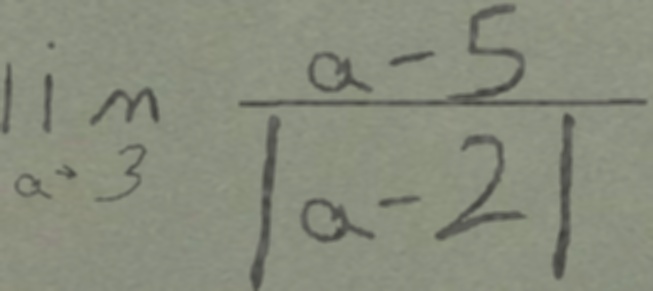 lim a→3 (a-5)/|a-2|